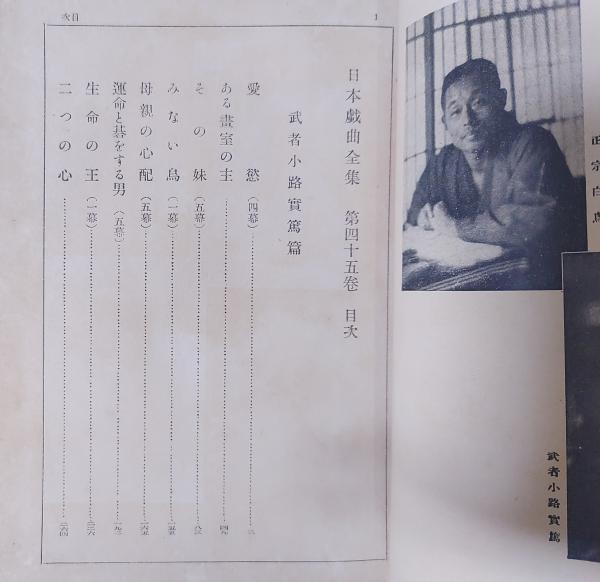 正宗白鳥
武者小路實篤
1
目次
日本戯曲全集 第四十五卷 目次
武者小路實篤篇
愛慾（四幕）
ある畫室の主 四九
その妹（五幕）
みない鳥（一幕） 一五五
母親の心配（五幕） 一六五
運命と碁をする男（五幕）
生命の王（一幕） 二三六
二つの心 二六四